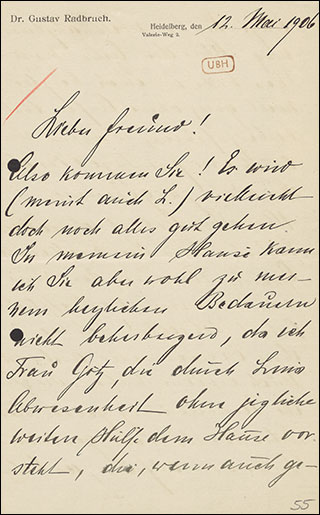 Dr. Gustav Radbruch.
Heidelberg, den 12. Mai 1906
Valerie-Weg 2.
UBH
Lieber Freund!
Also kommen Sie! Es wird
(meint auch L.) vielleicht
doch noch alles gut gehen.
In meinem Hause kann
ich Sie aber wohl zu mei-
nem herzlichen Bedauern
nicht beherbergen, da ich
Frau Götz, die durch
Abwesenheit ohne jegliche
weitere Hülfe dem Hause vor-
steht, die, wenn auch ge-
55